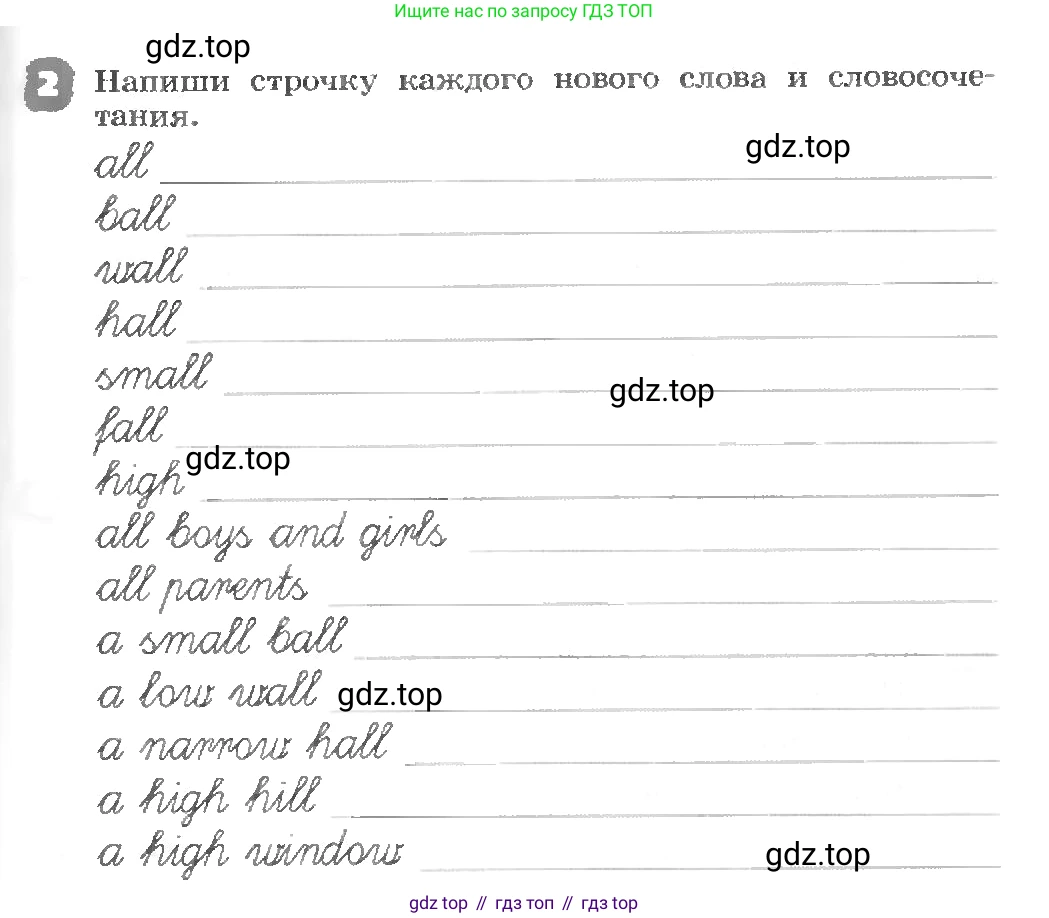 Ищите нас по запросу ГДЗ ТОП
gdz.top
2 Напиши строчку каждого нового слова и словосоче-
тания.
all gdz.top
ball
wall
hall
small gdz.top
fall
gdz.top
high
all boys and girls
all parents
a small ball
a low wall gdz.top
a narrow hall
a high hill
a high window gdz.top
gdz top // гдз топ // гдз top